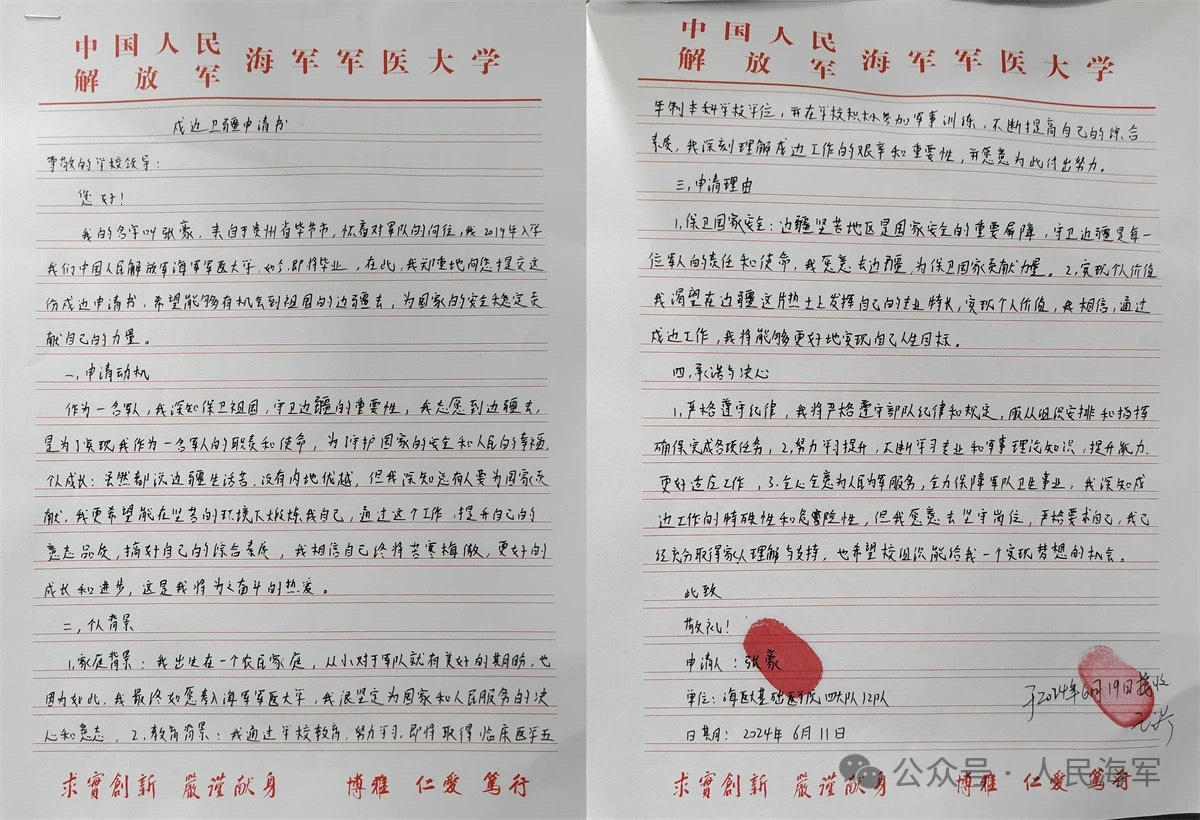 中国人民
解放军
海军军医大学
戍边卫疆申请书
尊敬的学校领导：
您好！
我的名字叫张豪，来自于贵州省毕节市，怀着对军队的向往，我2019年入学
我们中国人民解放军海军军医大学，如今，即将毕业，在此，我郑重地向您提交这
份戍边申请书，希望能够有机会到祖国的边疆去，为国家的安全稳定贡
献自己的力量。
一、申请动机
作为一名军人，我深知保卫祖国，守卫边疆的重要性，我志愿到边疆去，
是为了实现我作为一名军人的职责和使命，为了守护国家的安全和人民的幸福，
个人成长：虽然都说边疆生活苦，没有内地优越，但我深知总有人要为国家贡
献，我更希望能在坚苦的环境下火煅炼我自己，通过这个工作，提升自己的
意志品质，搞好自己的综合素质，我相信自己终将苦寒梅傲，更好的
成长和进步，这是我将为之奋斗的热爱。
二、个人背景
1.家庭背景：我出生在一个农民家庭，从小对于军队就有美好的期盼，也
因为如此，我最终如愿考入海军军医大学，我很坚定为国家和人民服务的决
心和意志，2.教育背景：我通过学校教育，努力学习，即将取得临床医学五
求實創新 嚴谨献身 博雅 仁愛 篤行
中国人民
解放军
海军军医大学
年制本科学校学位，并在学校积极参加军事训练，不断提高自己的综合
素质，我深刻理解戍边工作的艰辛和重要性，并愿意为此付出努力。
三、申请理由
1.保卫国家安全：边疆坚苦地区是国家安全的重要屏障，守卫边疆是每一
位军人的责任和使命，我愿意去边疆，为保卫国家贡献力量。2.实现个人价值
我渴望在边疆这片热土上发挥自己的专业特长，实现个人价值，我相信，通过
戍边工作，我将能够更好地实现自己人生目标。
四、承诺与决心
1.严格遵守纪律，我将严格遵守部队纪律和规定，服从组织安排和指挥
确保完成各项任务，2.努力学习提升，不断学习专业和军事理论知识，提升能力，
更好适应工作，3.全心全意为人民为军服务，全力保障军队卫生事业，我深知戍
边工作的特殊性和危险性，但我愿意去坚守岗位，严格要求自己，我已
经充分取得家人理解与支持，也希望校组织能给我一个实现梦想的机会。
此致
敬礼！
申请人：张豪
单位：海医大基础医学院四大队12队
日期：2024年6月11日
于2024年6月19日接收
求實創新 嚴谨献身 博雅 仁愛 篤行
公众号·人民海军